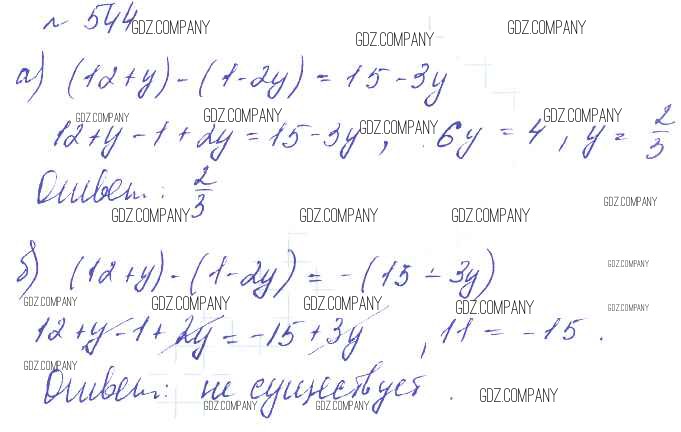 № 544
GDZ.COMPANY GDZ.COMPANY GDZ.COMPANY
а) (12+y)-(1-2y)=15-3y
GDZ.COMPANY GDZ.COMPANY GDZ.COMPANY GDZ.COMPANY
12+y-1+2y=15-3y, 6y=4, y=2/3
Ответ: 2/3
GDZ.COMPANY GDZ.COMPANY GDZ.COMPANY GDZ.COMPANY
б) (12+y)-(1-2y)=-(15-3y)
GDZ.COMPANY GDZ.COMPANY GDZ.COMPANY GDZ.COMPANY GDZ.COMPANY GDZ.COMPANY
12+y-1+2y=-15+3y, 11=-15.
GDZ.COMPANY
Ответ: не существует.
GDZ.COMPANY GDZ.COMPANY GDZ.COMPANY